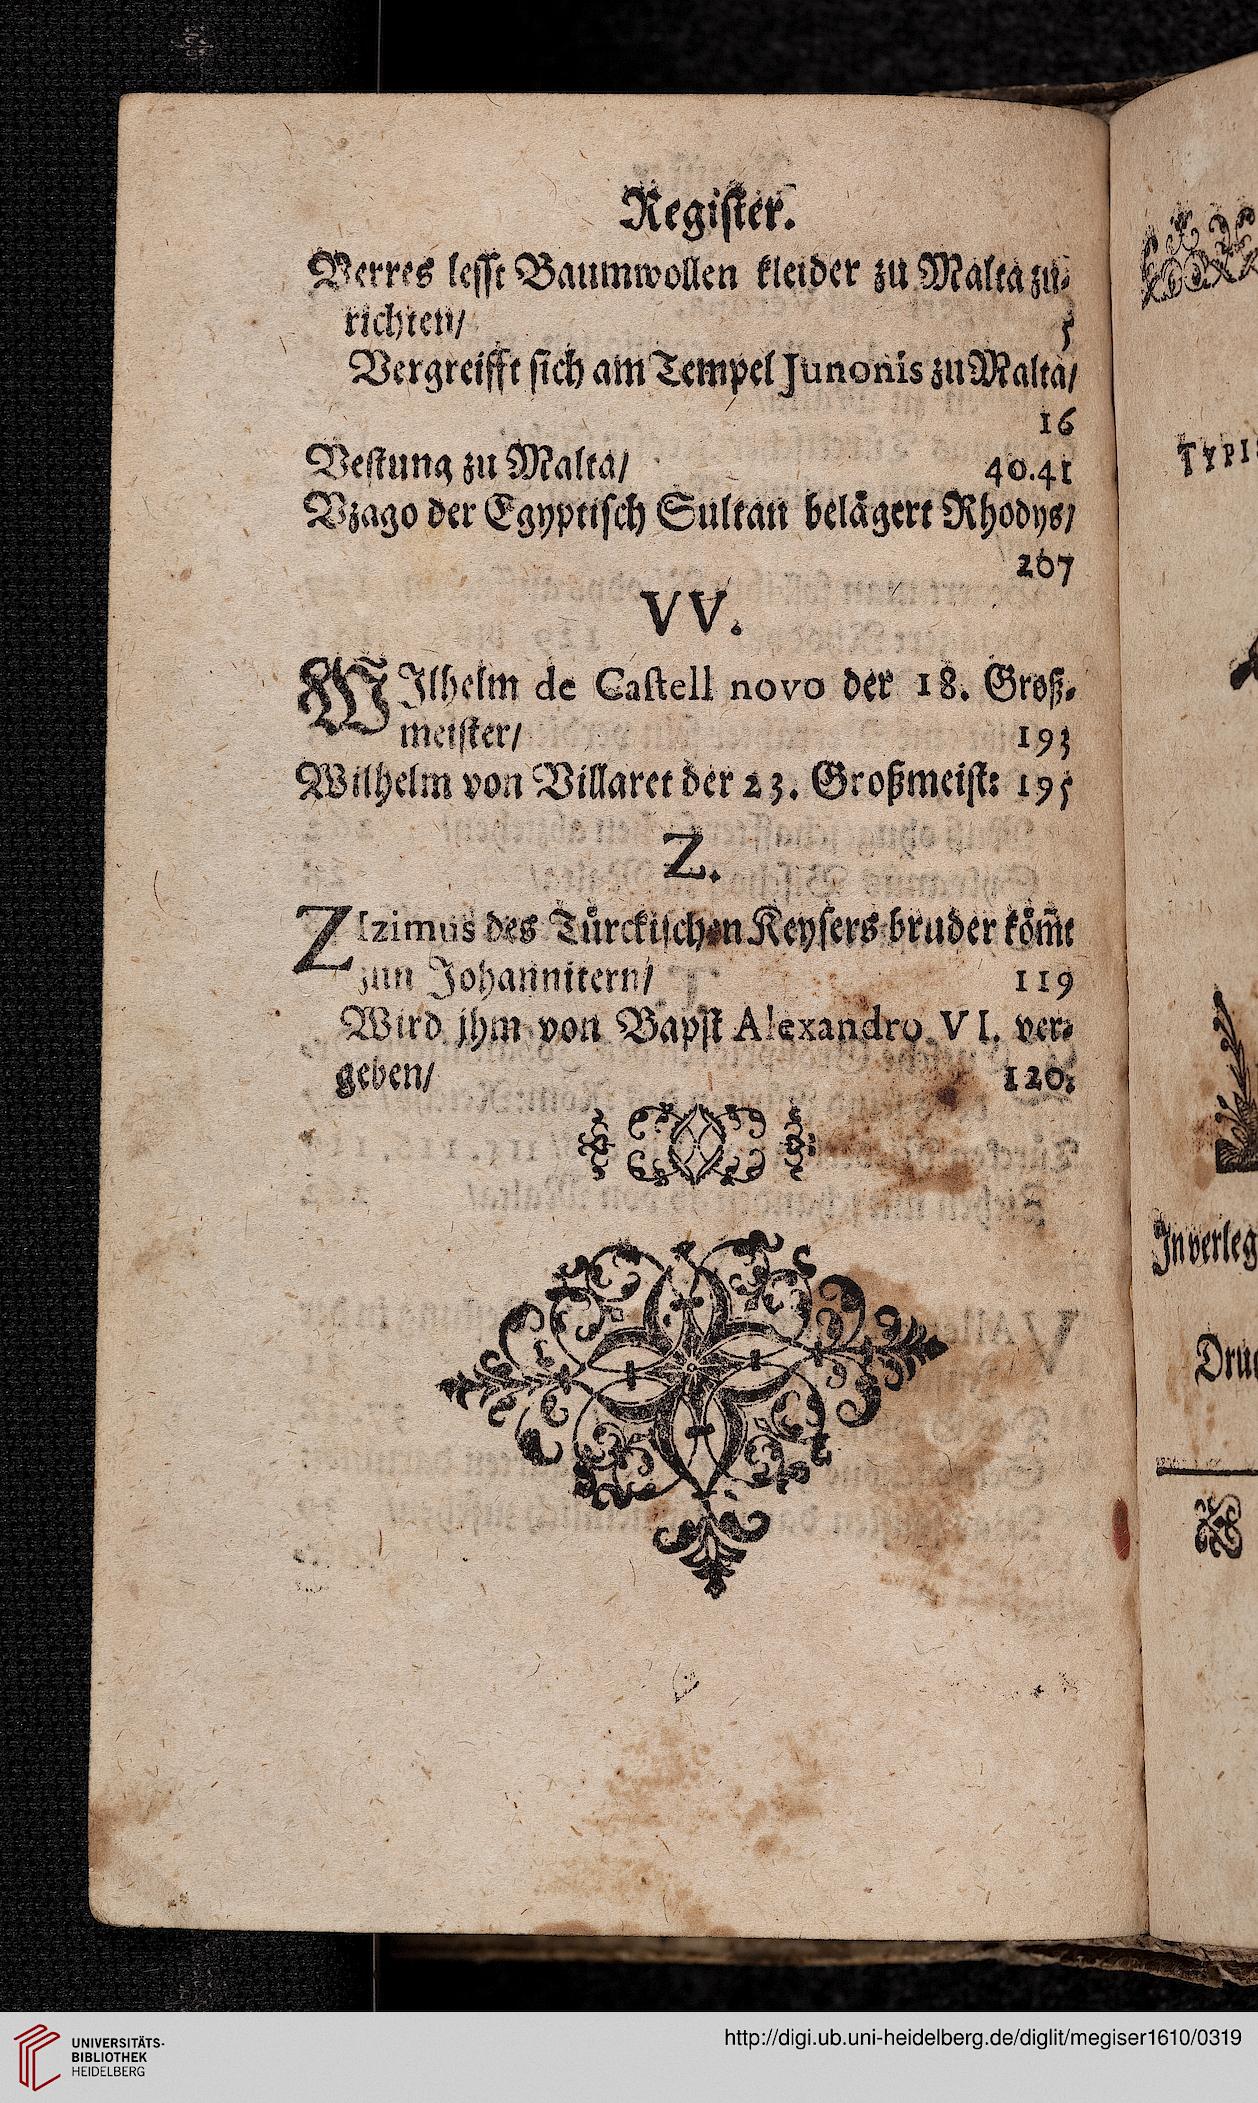 Register.
Verres lesst Baumwollen kleider zu Malta zu⸗
richten/ 5
Vergreifft sich am Tempel Junonis zu Malta/
16
Vestung zu Malta/ 40.41
Vzago der Egyptisch Sultan belägert Rhodys/
267
VV.
WJlhelm de Castell novo der 18. Groß⸗
meister/ 193
Wilhelm von Villaret der 23. Großmeist: 195
Z.
ZIzimus des Türckischen Keysers bruder köm̃t
zun Johannitern/ 119
Wird jhm von Bapst Alexandro VI. ver⸗
geben/ 120.
TYPI
Jn verleg
Druc
UNIVERSITÄTS-
BIBLIOTHEK
HEIDELBERG
http://digi.ub.uni-heidelberg.de/diglit/megiser1610/0319